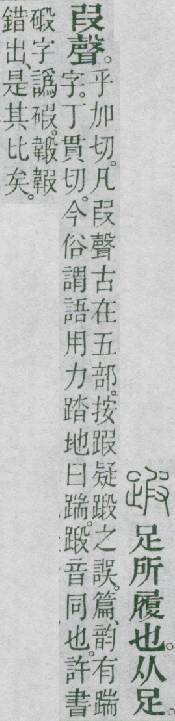 足所履也。从足
叚聲。
乎加切。凡叚聲古在五部。按疑之誤。篇、韵有踹
字。丁貫切。今俗謂語用力踏地曰踹。音同也。許書
碫字譌碬。
錯出、是其比矣。